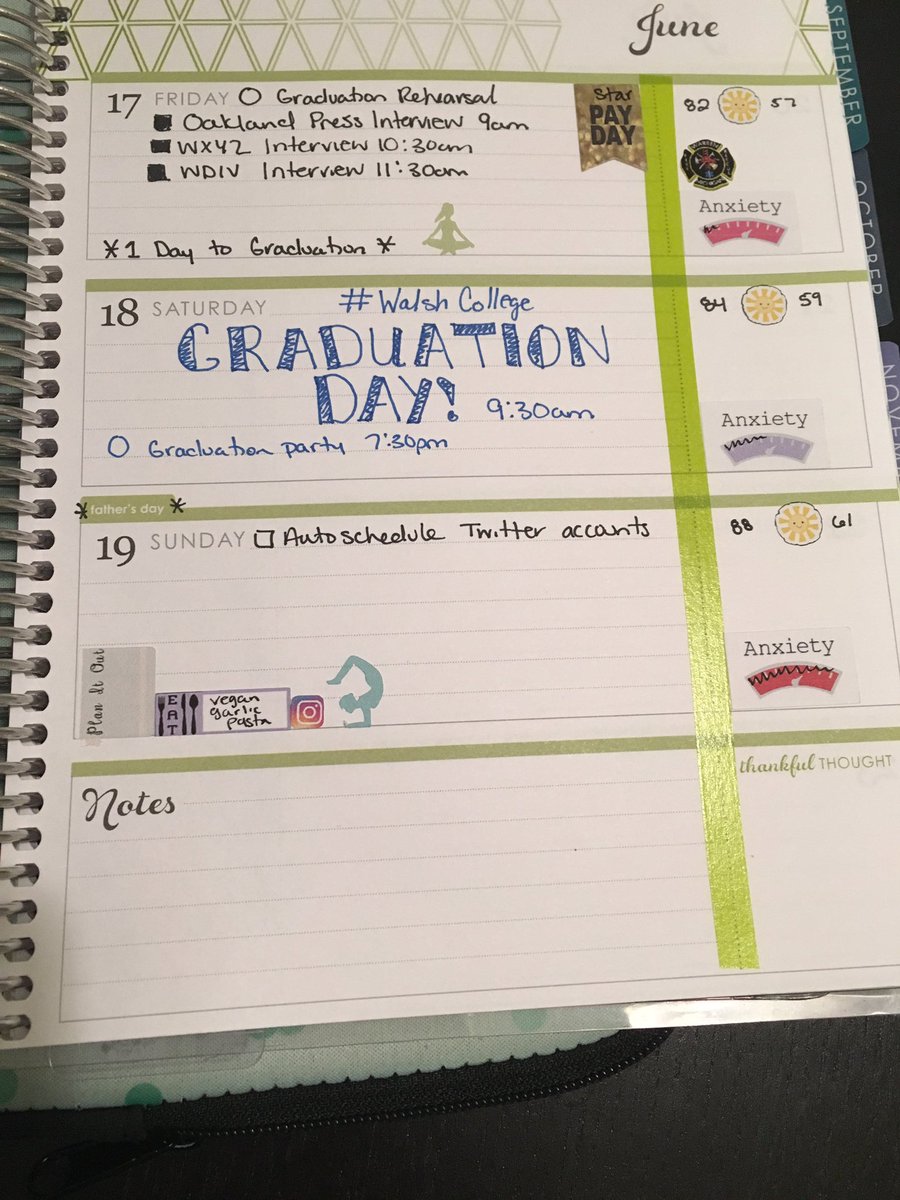 June
17 FRIDAY Graduation Rehearsal
Oakland Press Interview 9am
WXYZ Interview 10:30am
WDIV Interview 11:30am
*1 Day to Graduation*
Star
PAY
DAY
82 57
Anxiety
18 SATURDAY #Walsh College
GRADUATION
DAY! 9:30am
Graduation party 7:30pm
84 59
Anxiety
*father's day*
19 SUNDAY Autoschedule Twitter accants
88 61
Plan It Out
EAT
vegan
garlic
pasta
Anxiety
Notes
thankful THOUGHT
SEPTEMBER
OCTOBER
NOVEM